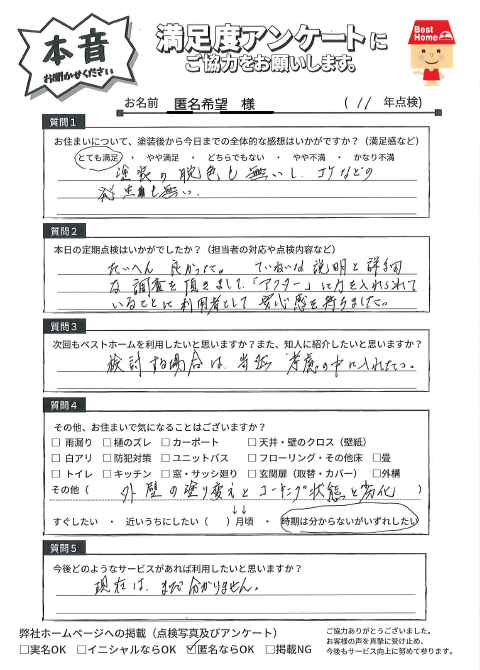 本音
お聞かせください
満足度アンケートに
ご協力をお願いします。
Best Home
お名前 匿名希望 様 （ 11 年点検）
質問１
お住まいについて、塗装後から今日までの全体的な感想はいかがですか？（満足感など）
とても満足 ・ やや満足 ・ どちらでもない ・ やや不満 ・ かなり不満
塗装の脱色も無いし、コケなどの
発生も無い。
質問２
本日の定期点検はいかがでしたか？（担当者の対応や点検内容など）
たいへん良かった。ていねいな説明と詳細
な調査を頂きました。「アフター」に力を入れられて
いることに利用者として安心感を持ちました。
質問３
次回もベストホームを利用したいと思いますか？また、知人に紹介したいと思いますか？
検討する場合は、当然考慮の中に入れたい。
質問４
その他、お住まいで気になることはございますか？
□ 雨漏り □ 樋のズレ □ カーポート □ 天井・壁のクロス（壁紙）
□ 白アリ □ 防犯対策 □ ユニットバス □ フローリング・その他床 □畳
□ トイレ □ キッチン □ 窓・サッシ廻り □ 玄関扉（取替・カバー） □外構
その他（ 外壁の塗り変えとコーキング状態と劣化 ）
↓↓
すぐしたい ・ 近いうちにしたい（ ）月頃 ・ 時期は分からないがいずれしたい
質問５
今後どのようなサービスがあれば利用したいと思いますか？
現在は、まだ分かりません。
弊社ホームページへの掲載（点検写真及びアンケート）
□実名OK □イニシャルならOK ☑匿名ならOK □掲載NG
ご協力ありがとうございました。
お客様の声を真摯に受け止め、
今後もサービス向上に努めて参ります。